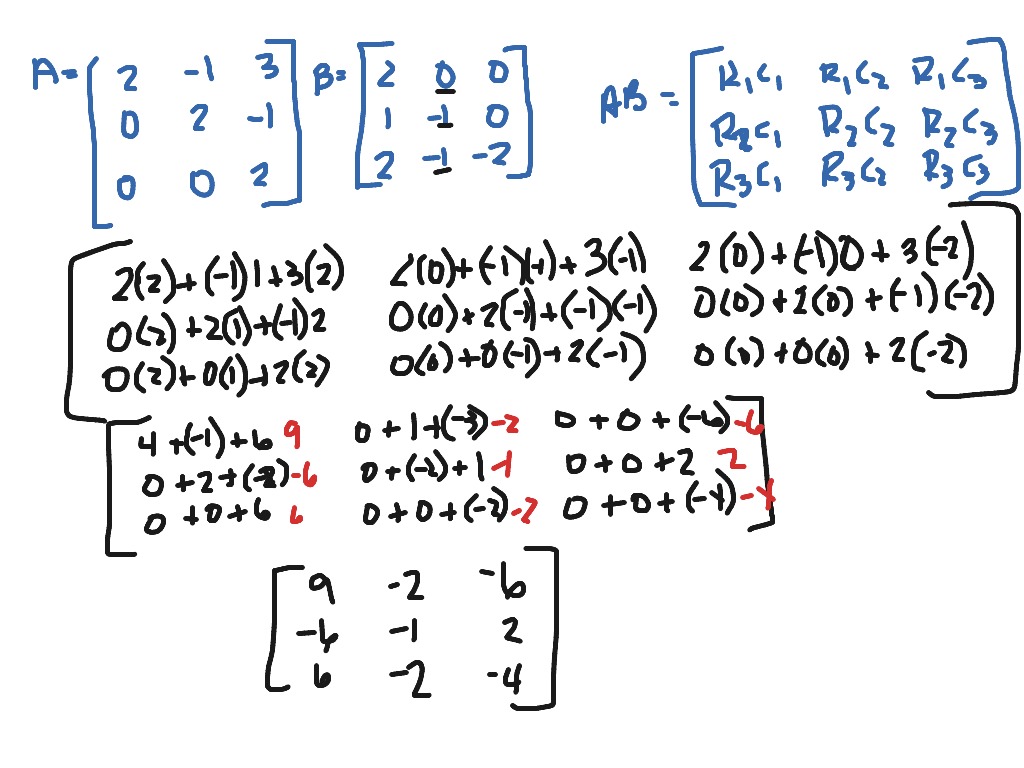 A = [ 2 -1 3 B = [ 2 0 0 AB = [ R1C1 R1C2 R1C3
0 2 -1 1 -1 0 R2C1 R2C2 R2C3
0 0 2 ] 2 -1 -2 ] R3C1 R3C2 R3C3 ]
[ 2(2)+(-1)1+3(2) 2(0)+(-1)(-1)+3(-1) 2(0)+(-1)0+3(-2)
0(2)+2(1)+(-1)2 0(0)+2(-1)+(-1)(-1) 0(0)+2(0)+(-1)(-2)
0(2)+0(1)+2(2) 0(0)+0(-1)+2(-1) 0(0)+0(0)+2(-2) ]
[ 4+(-1)+6 9 0+1+(-3) -2 0+0+(-6) -6
0+2+(-2) -6 0+(-2)+1 -1 0+0+2 2
0+0+6 6 0+0+(-2) -2 0+0+(-4) -4 ]
[ 9 -2 -6
-6 -1 2
6 -2 -4 ]